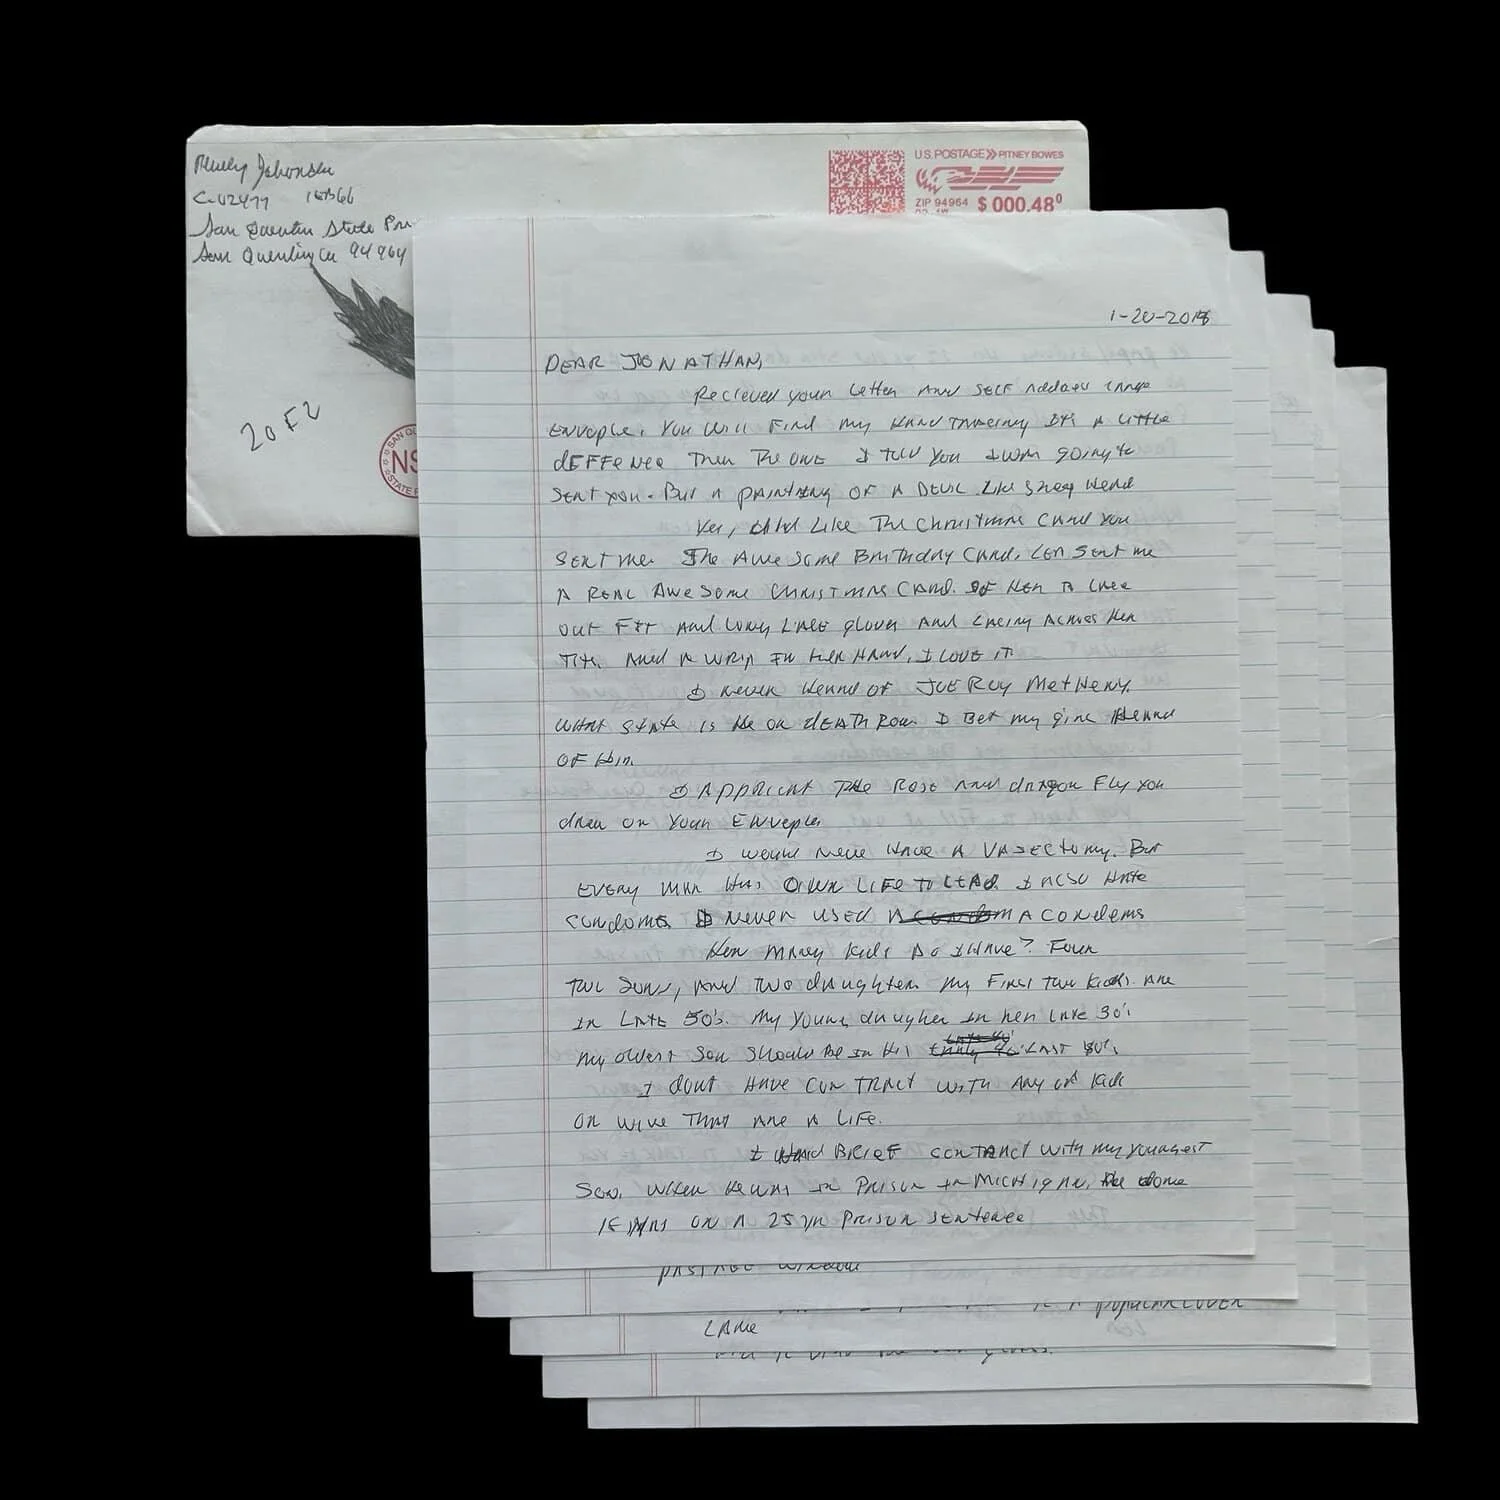 C-02477
San Quentin State Pri
San Quentin, Ca 94964
20F2
U.S. POSTAGE PITNEY BOWES
ZIP 94964 $ 000.48⁰
SAN QU
NS
STATE P
1-20-2018
DEAR JONATHAN,
Recieved your letter And SELF Addres
Envople. You will Find my HAND TRACEING It's A Little
dEFFENCE Then The ONE I TOLD You I WAS going to
SENT you. But A PAINTING OF A DEVIL Like Sheep Head
Yes, I did Like The Christmas Card You
SENT me. The Awesome Birthday Card. LEN SENT me
A REAL AWESOME CHRISTMAS CARD. OF HER IN LACE
OUT FIT And Long LACE glover And LACING Across Her
Tits. And A WHIP IN her HAND, I LOVE IT
I never Heard OF JOE Roy MetHENy.
What State is He on dEATH Row I Bet my girl Heard
OF Him.
I APPRICIAT THE ROSE And dragon Fly you
drew on Your ENVople
I would Neve Have A VASECTomy. But
EVERY MAN Has OWN LIFE To LEAD. I ALSO HATE
condoms I Never used A condoms
How Many Kids Do I Have? Four
Two Sons, And Two daughters. My First Two Kids Are
In LATE 50's. My Young daugher In her Late 30's
My oldest Son Should Be In His LAST 40's
I dont HAVE CONTRACT WITH Any of Kids
OR WIVE THAT ARE A LIFE.
I Had BRIEF contAct with my Youngest
Son. When He was In Prison In Michigne. He done
15 yrs ON A 25 yr Prison Sentence
Window
popular
LAme